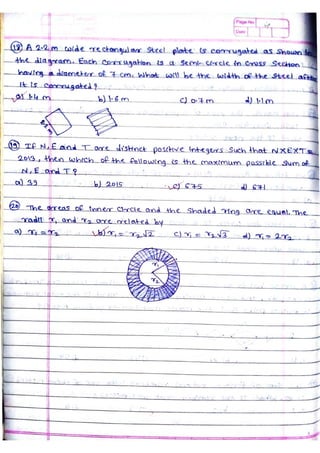 Page No.
Date
(18) A 2.2 m wide rectangular steel plate is corrugated as shown in
the diagram. Each corrugation is a semi-circle in cross section
having a diameter of 7 cm. What will be the width of the steel after
it is corrugated?
a) 1.4 m b) 1.6 m c) 0.7 m d) 1.1 m
(19) If N, E and T are distinct positive integers such that NXEXT =
2013, then which of the following is the maximum possible sum of
N, E and T?
a) 39 b) 2015 c) 675 d) 671
(20) The areas of inner circle and the shaded ring are equal. The
radii r1 and r2 are related by
a) r1 = r2 b) r1 = r2√2 c) r1 = r2√3 d) r1 = 2r2
r1
r2